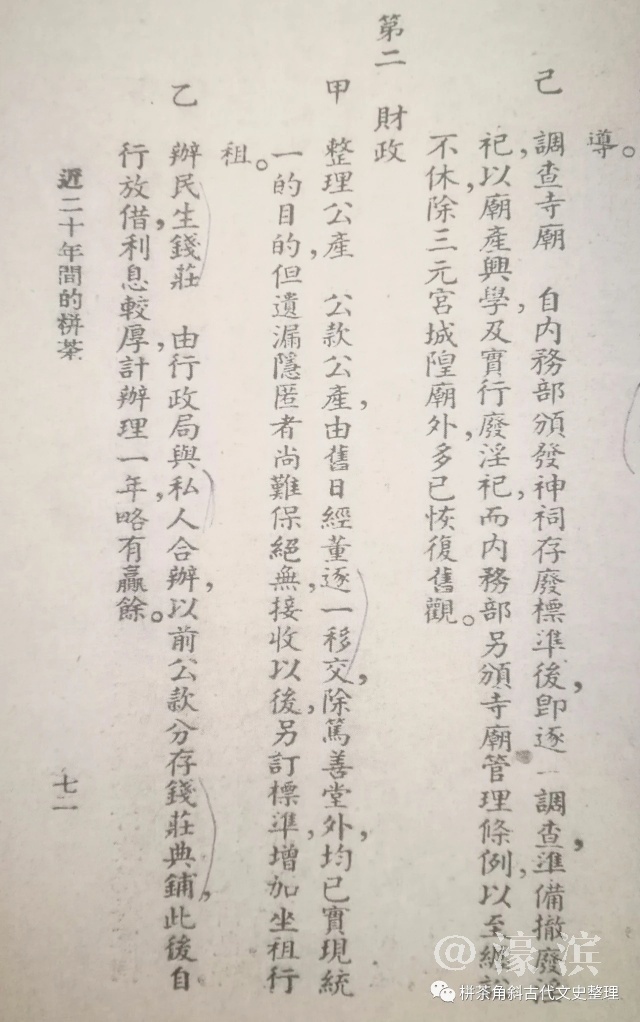 導。
己　調查寺廟　自內務部頒發神祠存廢標準後，卽逐一調查，準備撤廢淫
祀，以廟產興學，及實行廢淫祀，而內務部另頒寺廟管理條例，以至纏訟
不休，除三元宮城隍廟外，多已恢復舊觀。
第二　財政
甲　整理公產　公款公產，由舊日經董逐一移交，除篤善堂外，均已實現統
一的目的，但遺漏隱匿者，尚難保絕無，接收以後，另訂標準，增加坐租行
租。
乙　辦民生錢莊　由行政局與私人合辦，以前公款分存錢莊典鋪，此後自
行放借，利息較厚，計辦理一年，略有贏餘。
近二十年間的栟茶
七一
@濠滨
栟茶角斜古代文史整理